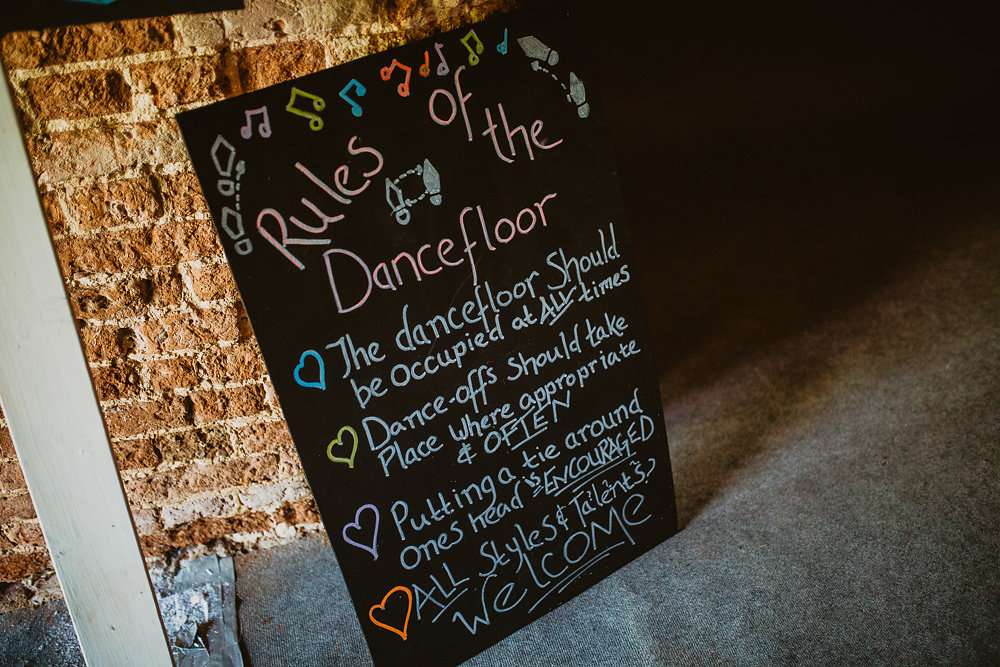 Rules of the
Dancefloor
The dancefloor Should
be occupied at ALL times
Dance-offs Should take
Place where appropriate
& OFTEN
Putting a tie around
ones head is ENCOURAGED
ALL Styles & Talents
WelCOME